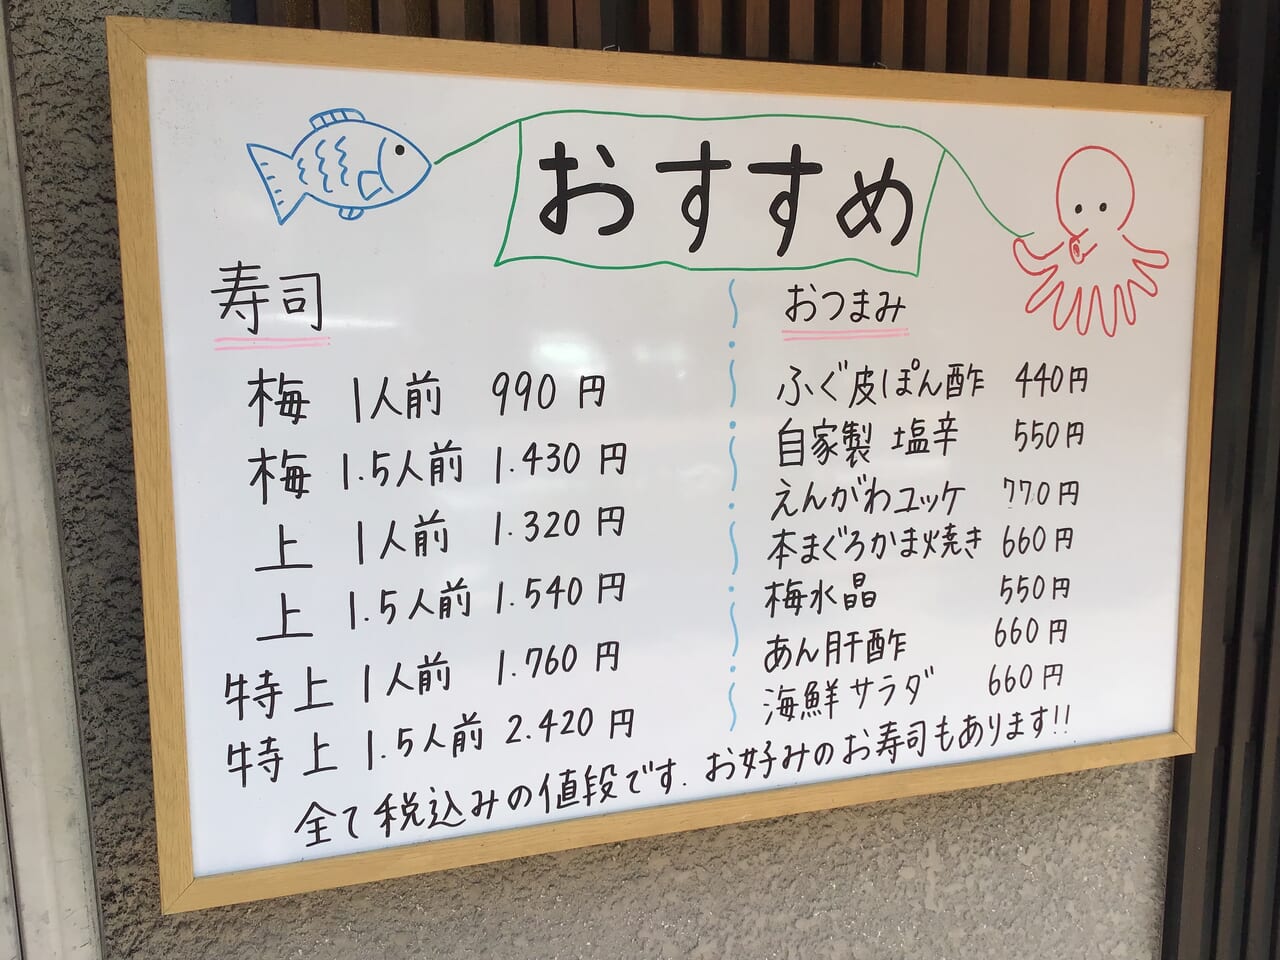 おすすめ
寿司
梅 1人前 990円
梅 1.5人前 1.430円
上 1人前 1.320円
上 1.5人前 1.540円
特上 1人前 1.760円
特上 1.5人前 2.420円
おつまみ
ふぐ皮ぽん酢 440円
自家製 塩辛 550円
えんがわユッケ 770円
本まぐろかま焼き 660円
梅水晶 550円
あん肝酢 660円
海鮮サラダ 660円
全て税込みの値段です.お好みのお寿司もあります!!